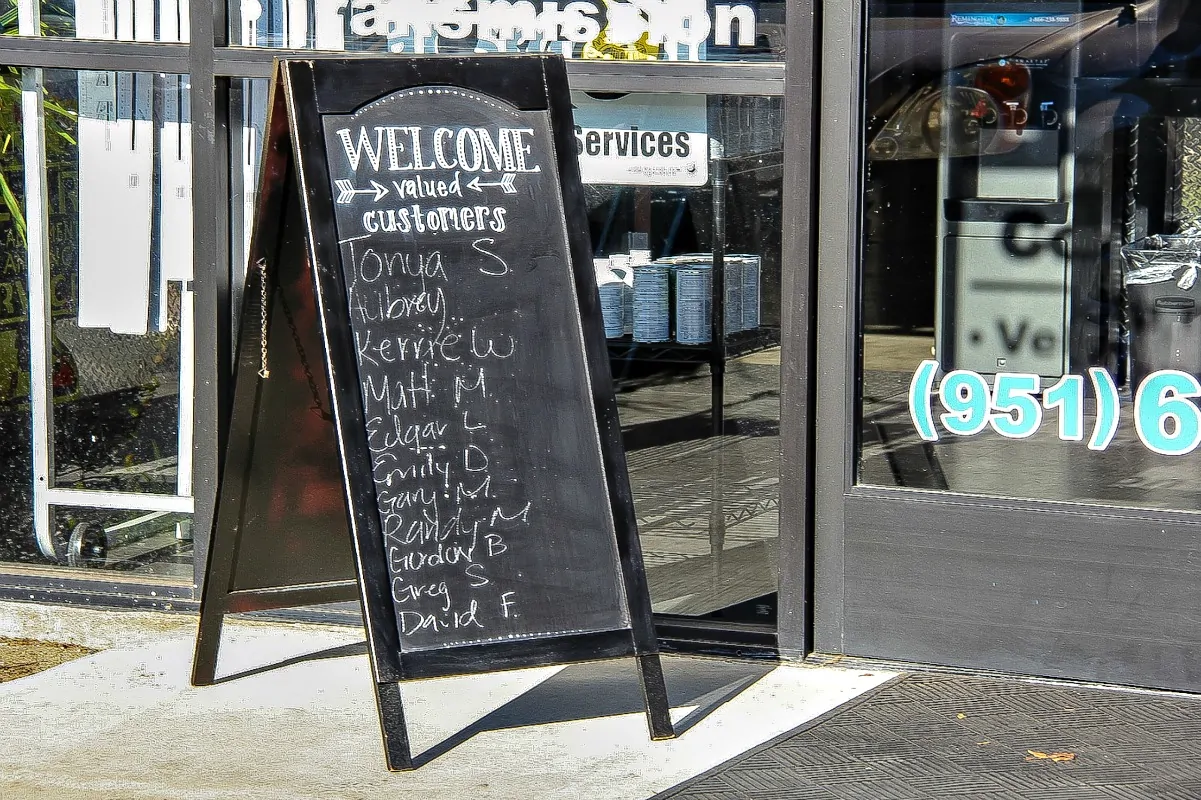 Transmission
Services
WELCOME
valued
customers
Tonya S.
Aubrey
Kerrie W
Matt M.
Edgar L.
Emily D.
Gary M.
Randy M
Gordon B
Greg S.
David F.
REMINGTON
Rubbermaid
• Ve
(951) 6